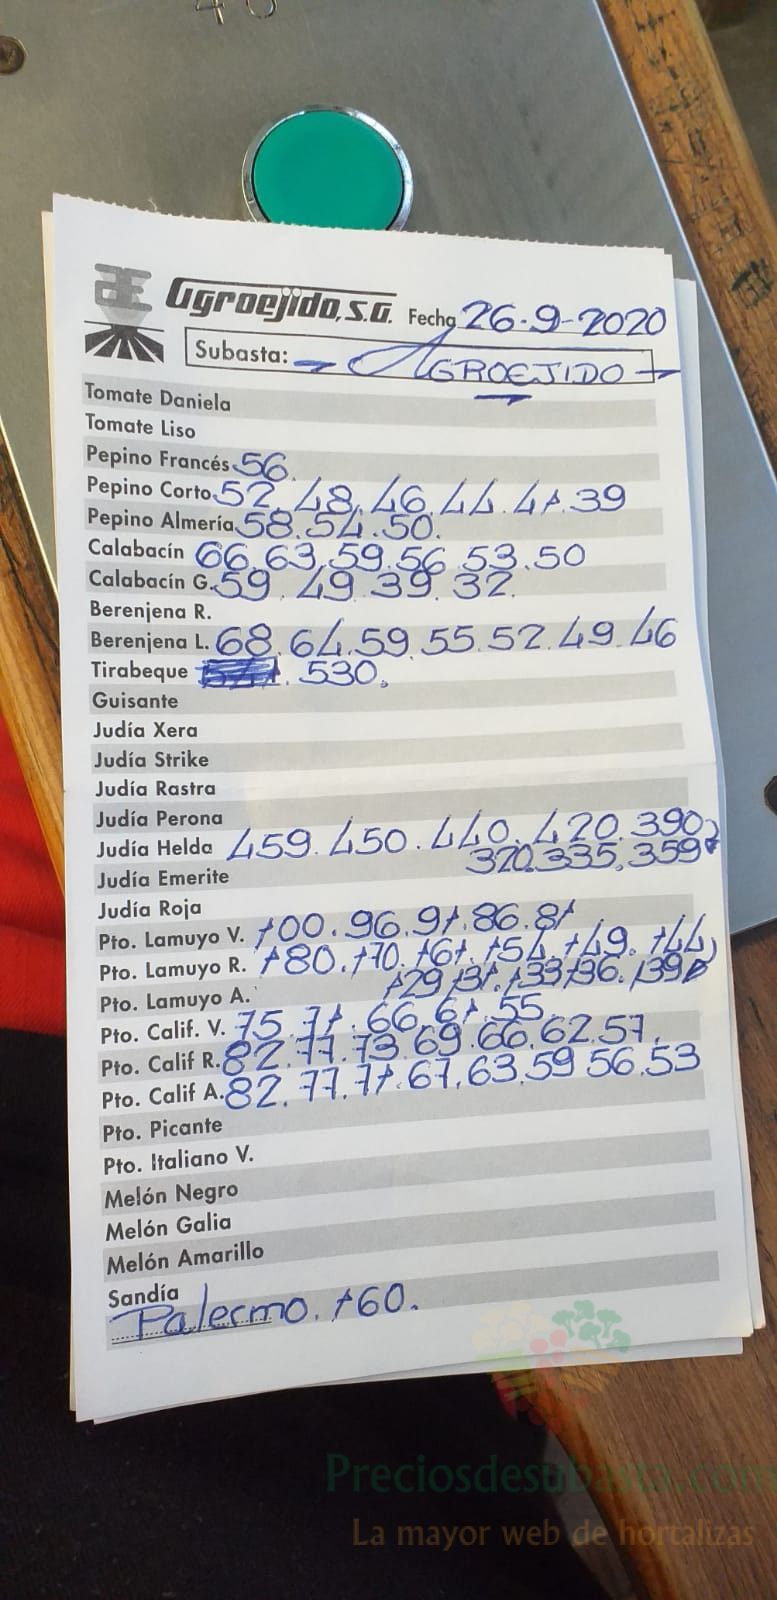 40
Æ Agroejido, S.A. Fecha 26-9-2020
Subasta: → AGROEJIDO →
Tomate Daniela
Tomate Liso
Pepino Francés 56.
Pepino Corto 52. 48. 46. 44. 41. 39
Pepino Almería 58. 54. 50.
Calabacín 66. 63. 59. 56. 53. 50
Calabacín G. 59. 49. 39. 32.
Berenjena R.
Berenjena L. 68. 64. 59. 55. 52. 49. 46
Tirabeque . 530.
Guisante
Judía Xera
Judía Strike
Judía Rastra
Judía Perona
Judía Helda 459. 450. 440. 420. 390
320. 335. 359
Judía Emerite
Judía Roja
Pto. Lamuyo V. 100. 96. 91. 86. 81
Pto. Lamuyo R. 180. 170. 161. 154. 149. 144
129. 131. 133. 136. 139
Pto. Lamuyo A.
Pto. Calif. V. 75. 71. 66. 61. 55.
Pto. Calif R. 82. 77. 73. 69. 66. 62. 57.
Pto. Calif A. 82. 77. 71. 67. 63. 59 56. 53
Pto. Picante
Pto. Italiano V.
Melón Negro
Melón Galia
Melón Amarillo
Sandía
Palermo. 160.
Preciosdesubasta.com
La mayor web de hortalizas